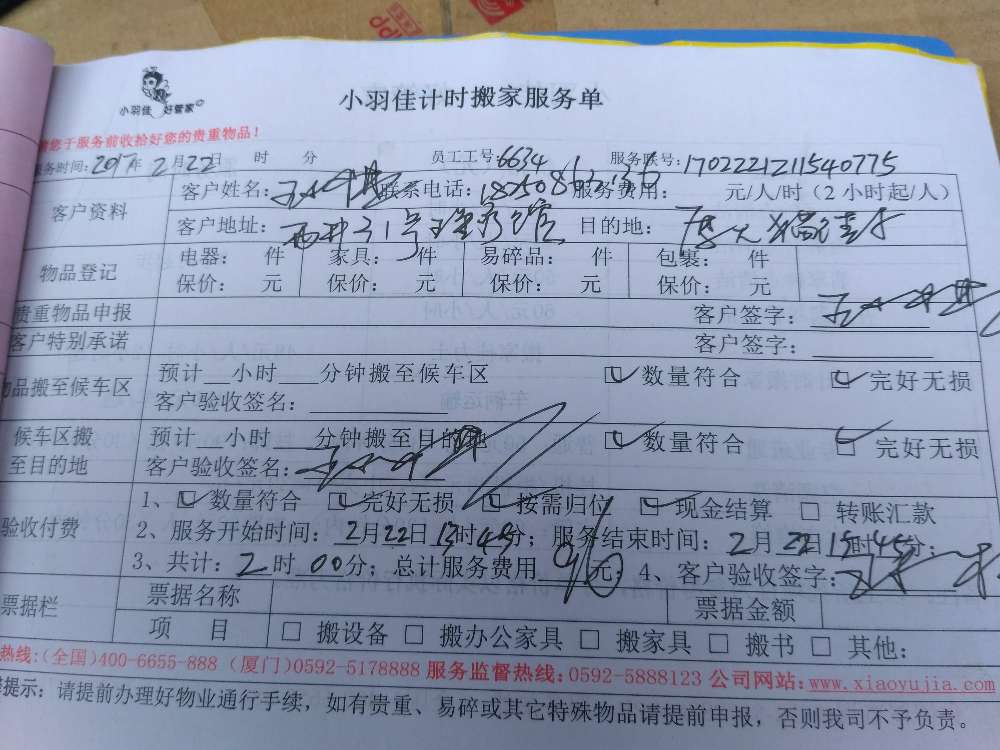 小羽佳 好管家
小羽佳计时搬家服务单
您于服务前收拾好您的贵重物品！
服务时间: 2017年 2月22日 时 分 员工工号: 6634 服务联号: 1702221211540775
客户资料 客户姓名: 联系电话: 服务费用: 元/人/时（2 小时起/人）
客户地址: 目的地:
物品登记 电器: 件 家具: 件 易碎品: 件 包裹: 件
保价: 元 保价: 元 保价: 元 保价: 元
贵重物品申报 客户签字:
客户特别承诺 客户签字:
物品搬至候车区 预计__小时___分钟搬至候车区 ☑ 数量符合 ☑ 完好无损
客户验收签名:
候车区搬至目的地 预计__小时___分钟搬至目的地 ☑ 数量符合 ☑ 完好无损
客户验收签名:
验收付费 1、☑ 数量符合 ☑ 完好无损 ☑ 按需归位 ☑ 现金结算 □ 转账汇款
2、服务开始时间: 2月22日13时45分；服务结束时间: 2月22日15时45分；
3、共计: 2时00分；总计服务费用 元；4、客户验收签字:
票据栏 票据名称 票据金额
项 目 □ 搬设备 □ 搬办公家具 □ 搬家具 □ 搬书 □ 其他:
热线:(全国)400-6655-888 (厦门)0592-5178888 服务监督热线:0592-5888123 公司网站:www.xiaoyujia.com
提示: 请提前办理好物业通行手续，如有贵重、易碎或其它特殊物品请提前申报，否则我司不予负责。